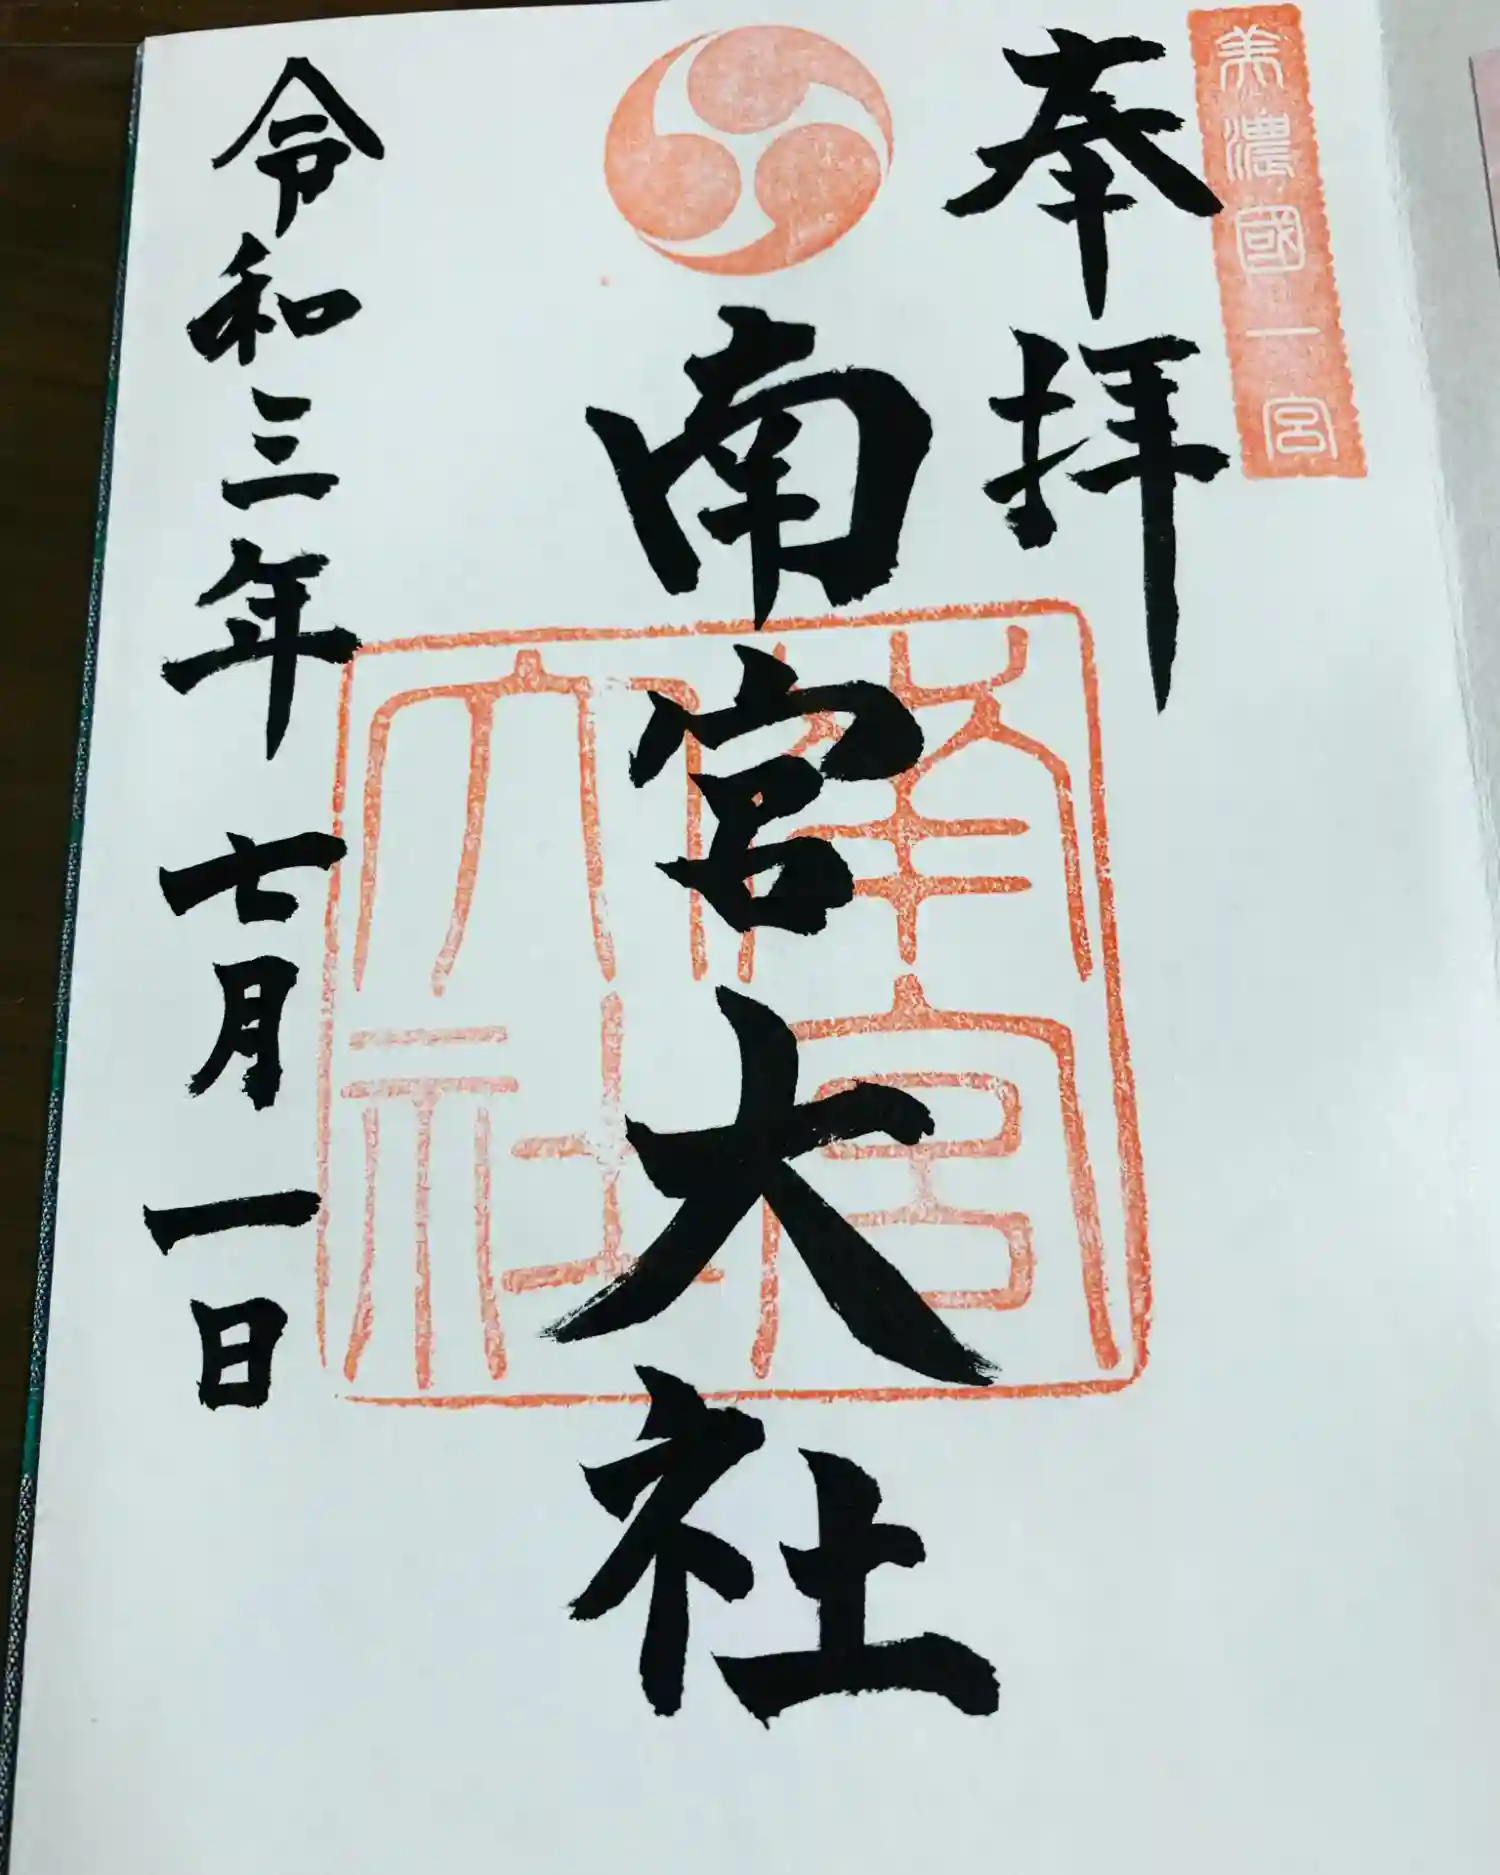 美濃國一宮
奉拝
南宮大社
南宮大社
令和三年七月一日